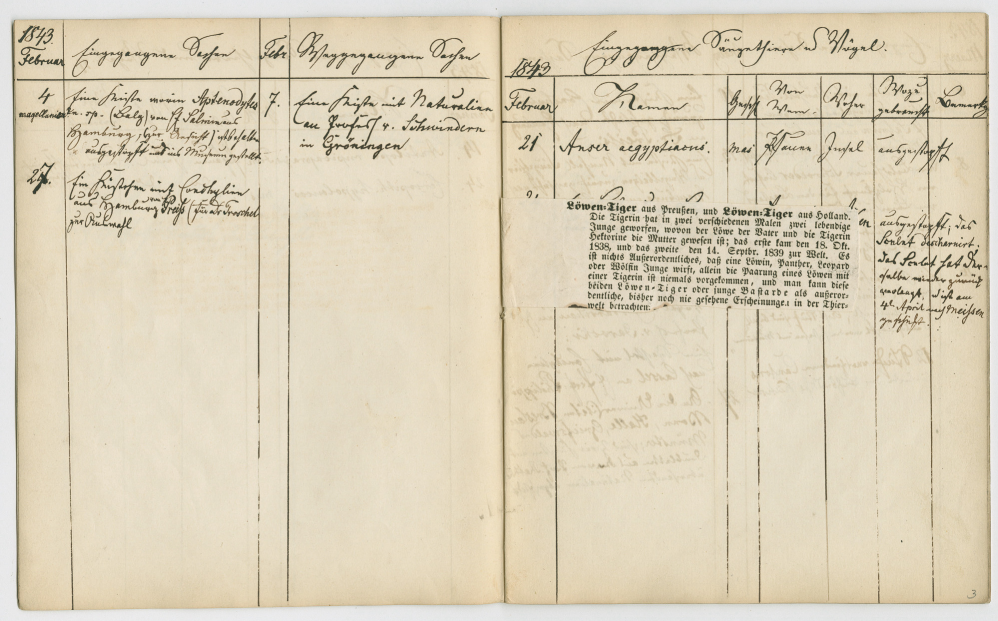 1843.
Februar
Eingegangene Sachen
Febr
Weggegangene Sachen
4
Eine Kiste worin Aptenodytes
magellanica
n. sp. (Balg) von Hr Salmin aus
Hamburg, (zur Ansicht) behalten
ausgestopft und ins Museum gestellt
27.
Ein Kistchen mit Conchylien
aus Hamburg von Preiß (für Dr Troschel
zur Auswahl
7.
Eine Kiste mit Naturalien
an Profess v. Schwindern
in Gröningen
Eingegangene Säugethiere u Vögel.
1843
Februar
Namen
Geschl
Von
Wem.
Woher
Wozu
gebraucht
Bemerk
21
Anser aegyptiacus.
mas
Pfauen
Insel
ausgestopft
Löwen-Tiger aus Preußen, und Löwen-Tiger aus Holland.
Die Tigerin hat in zwei verschiedenen Malen zwei lebendige
Junge geworfen, wovon der Löwe der Vater und die Tigerin
Hektorine die Mutter gewesen ist; das erste kam den 18. Okt.
1838, und das zweite den 14. Septbr. 1839 zur Welt. Es
ist nichts Außerordentliches, daß eine Löwin, Panther, Leopard
oder Wölfin Junge wirft, allein die Paarung eines Löwen mit
einer Tigerin ist niemals vorgekommen, und man kann diese
beiden Löwen-Tiger oder junge Bastarde als außeror-
dentliche, bisher noch nie gesehene Erscheinungen in der Thier-
welt betrachten.
en
ausgestopft; das
Skelet
das Skelet hat der-
selbe wieder zurück
verlangt, d ist am
4t April nach Meissen
geschickt.
3